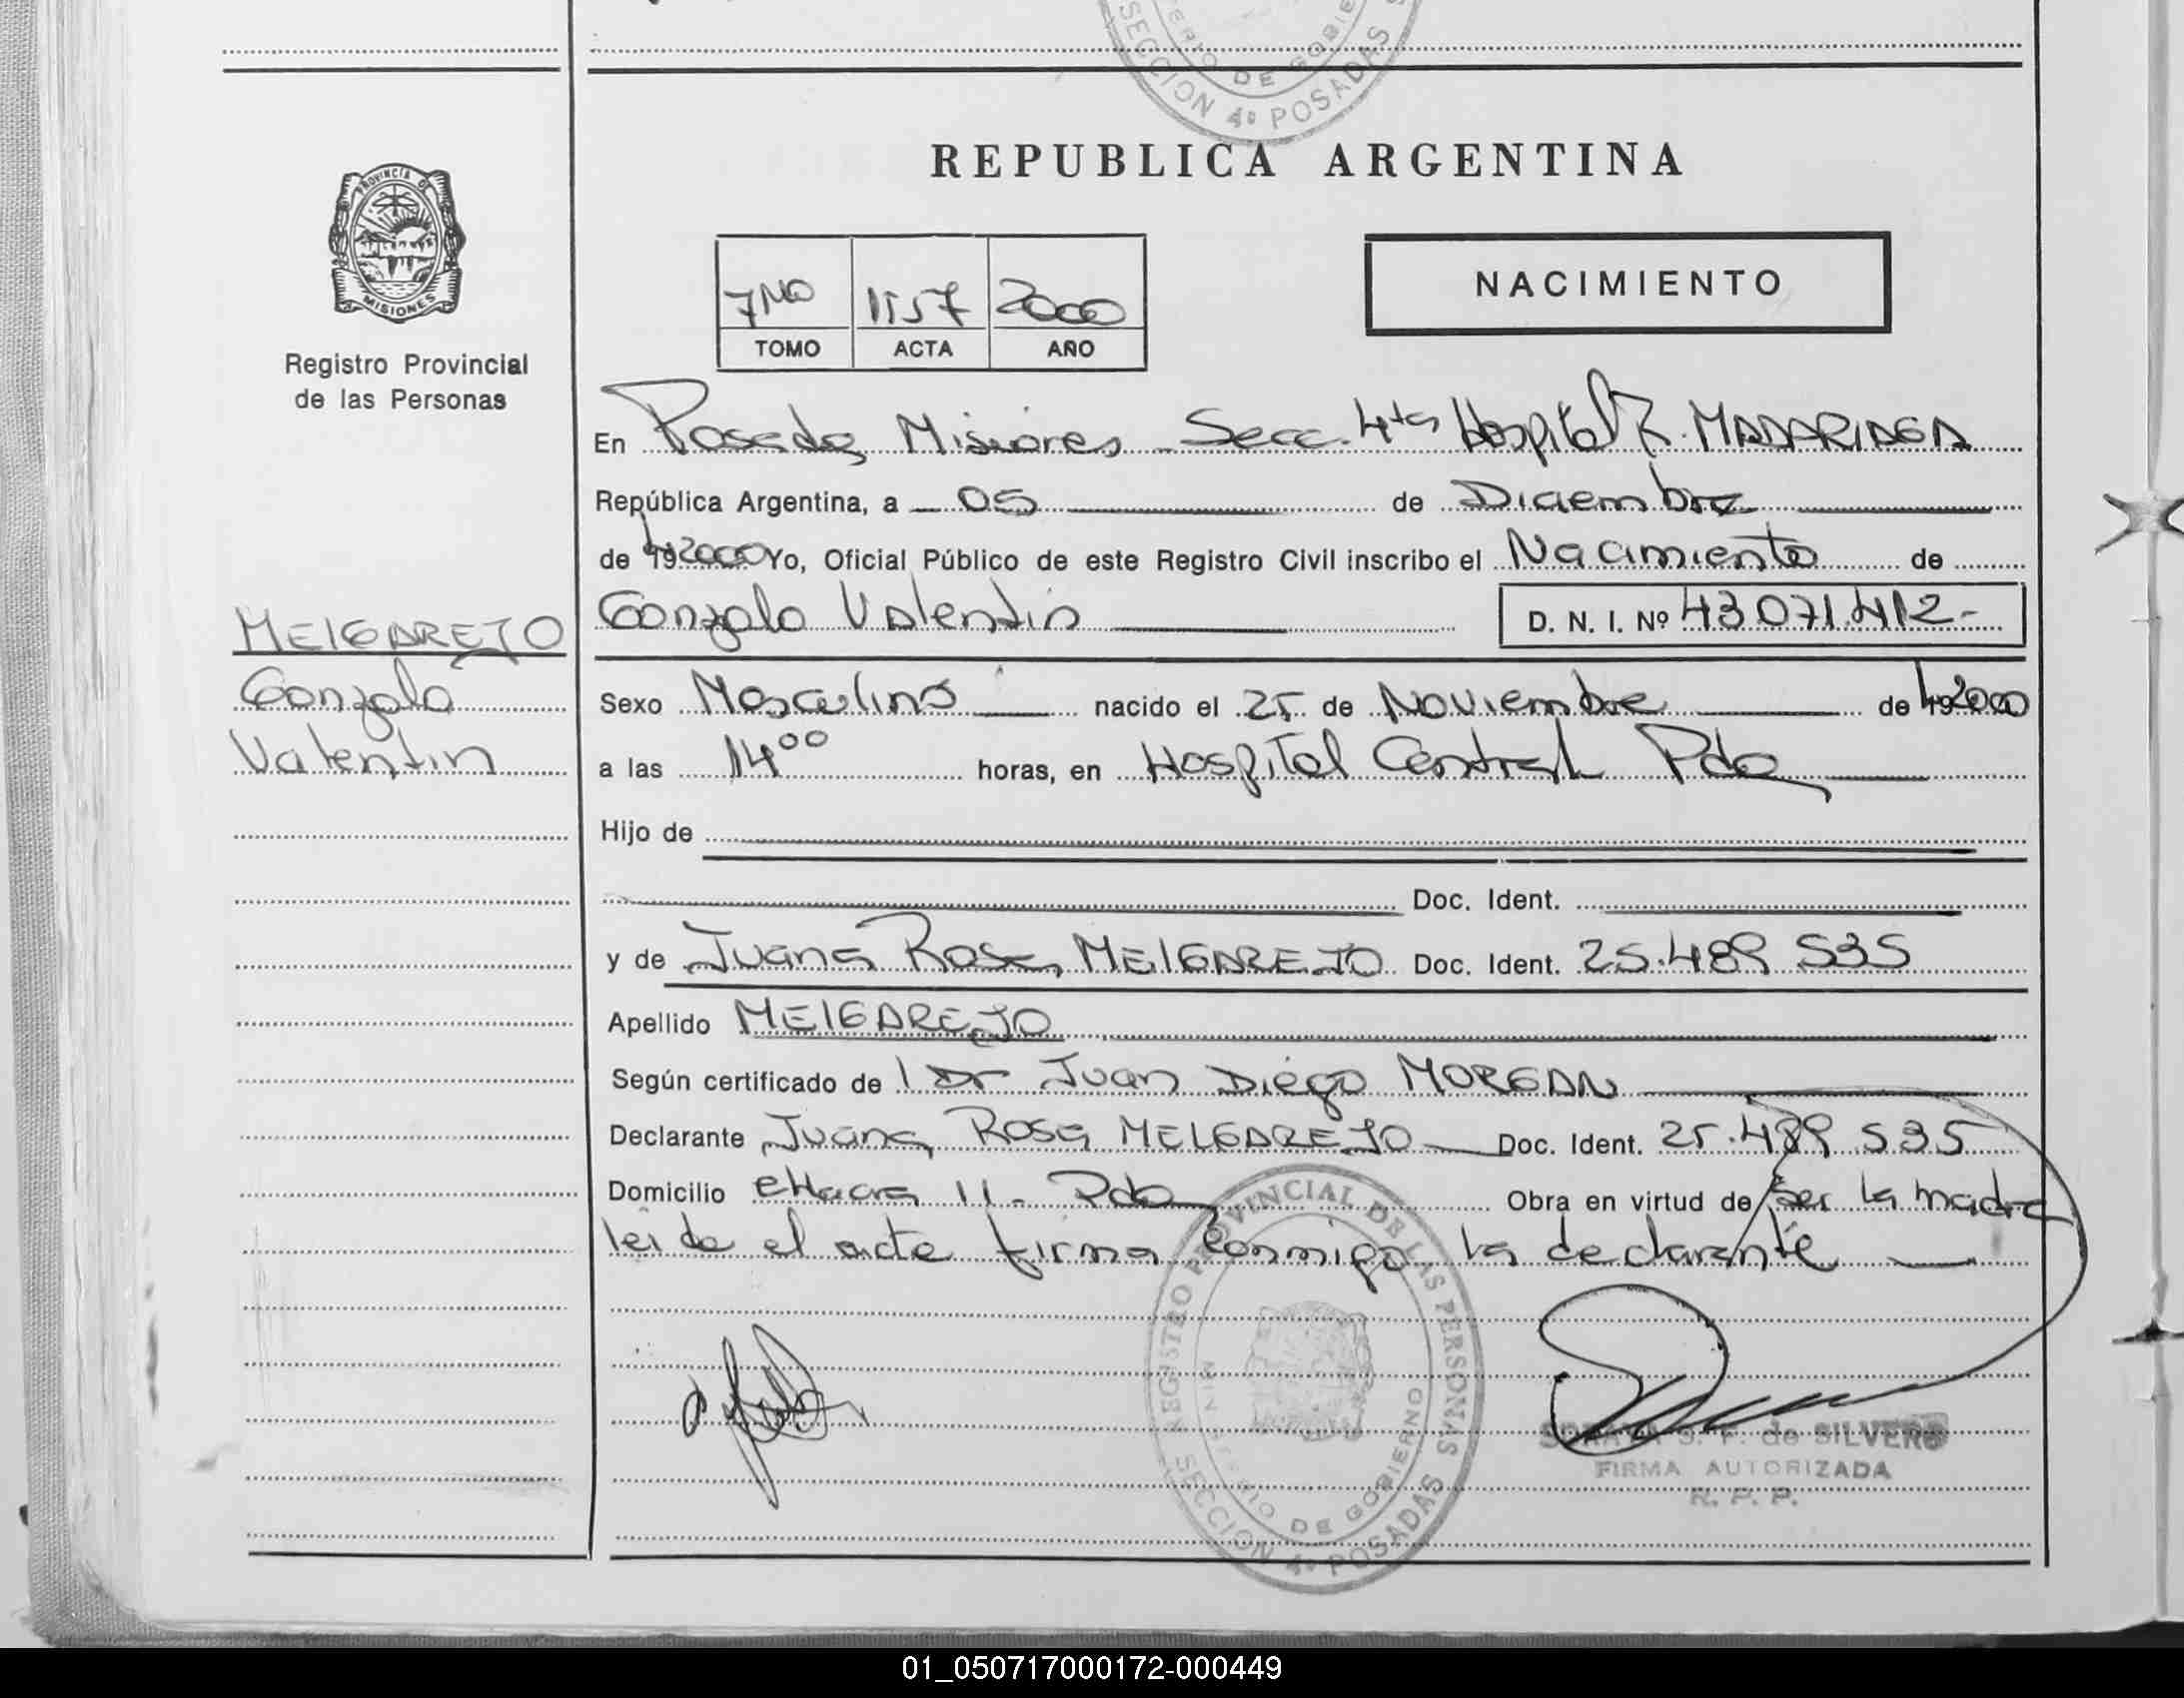 MINISTERIO DE GOBIERNO
SECCION 4º POSADAS
PROVINCIA DE
MISIONES
Registro Provincial
de las Personas
REPUBLICA ARGENTINA
NACIMIENTO
7MO 1157 2000
TOMO ACTA AÑO
En Posadas Misiones - Secc. 4ta Hospital R. MADARIAGA
República Argentina, a 05 de Diciembre
de 192000 Yo, Oficial Público de este Registro Civil inscribo el Nacimiento de
Gonzalo Valentin D. N. I. Nº 43.071.412-
MELGAREJO
Gonzalo
Valentin
Sexo Masculino nacido el 25 de Noviembre de 192000
a las 14 00 horas, en Hospital Central Pdas
Hijo de
Doc. Ident.
y de Juana Rosa MELGAREJO Doc. Ident. 25.489 535
Apellido MELGAREJO
Según certificado de l Dr Juan Diego MORGAN
Declarante Juana Rosa MELGAREJO Doc. Ident. 25.489 535
Domicilio Chacra 11 - Pdas Obra en virtud de Ser la madre
leida el acta firma conmigo la declarante
REGISTRO PROVINCIAL DE LAS PERSONAS
MINISTERIO DE GOBIERNO
SECCION 4º POSADAS
S. F. de SILVERO
FIRMA AUTORIZADA
R. P. P.
01_050717000172-000449